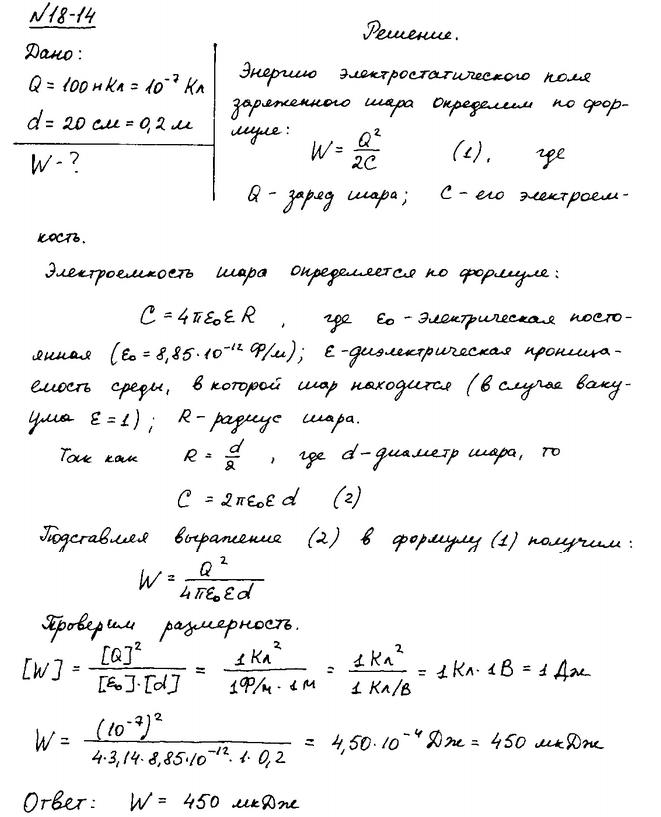 №18-14
Дано:
Q = 100 нКл = 10⁻⁷ Кл
d = 20 см = 0,2 м
W - ?
Решение.
Энергию электростатического поля
заряженного шара определим по фор-
муле:
W = Q²/2C (1), где
Q - заряд шара; C - его электроем-
кость.
Электроемкость шара определяется по формуле:
C = 4πε₀ε R , где ε₀ - электрическая посто-
янная (ε₀ = 8,85·10⁻¹² Ф/м); ε - диэлектрическая проница-
емость среды, в которой шар находится (в случае ваку-
ума ε = 1); R - радиус шара.
Так как R = d/2 , где d - диаметр шара, то
C = 2πε₀ε d (2)
Подставляя выражение (2) в формулу (1) получим:
W = Q²/4πε₀εd
Проверим размерность.
[W] = [Q]²/[ε₀]·[d] = 1 Кл²/1Ф/м · 1м = 1 Кл²/1 Кл/В = 1 Кл · 1В = 1 Дж
W = (10⁻⁷)²/4·3,14·8,85·10⁻¹²·1·0,2 = 4,50·10⁻⁴ Дж = 450 мкДж
Ответ: W = 450 мкДж